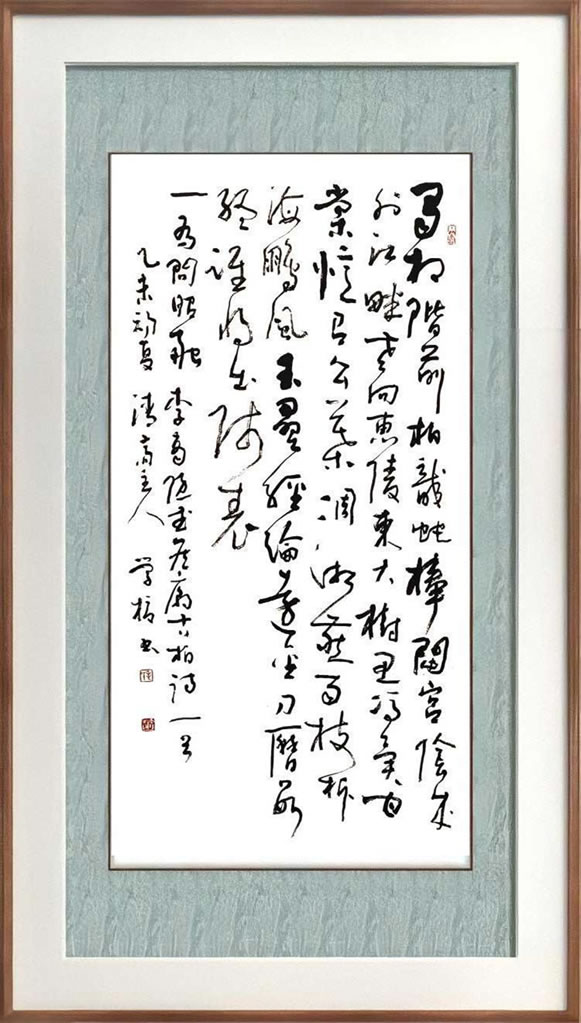 蜀相階前柏龍蛇捧閟宮陰成
外江畔老向惠陵東大樹思馮異甘
棠憶召公葉凋湘燕雨枝拆
海鵬風玉壘經綸遠金刀曆數
終誰將出師表
一為問昭融 李商隱武侯廟古柏詩一首
乙未初夏 主人 学 书